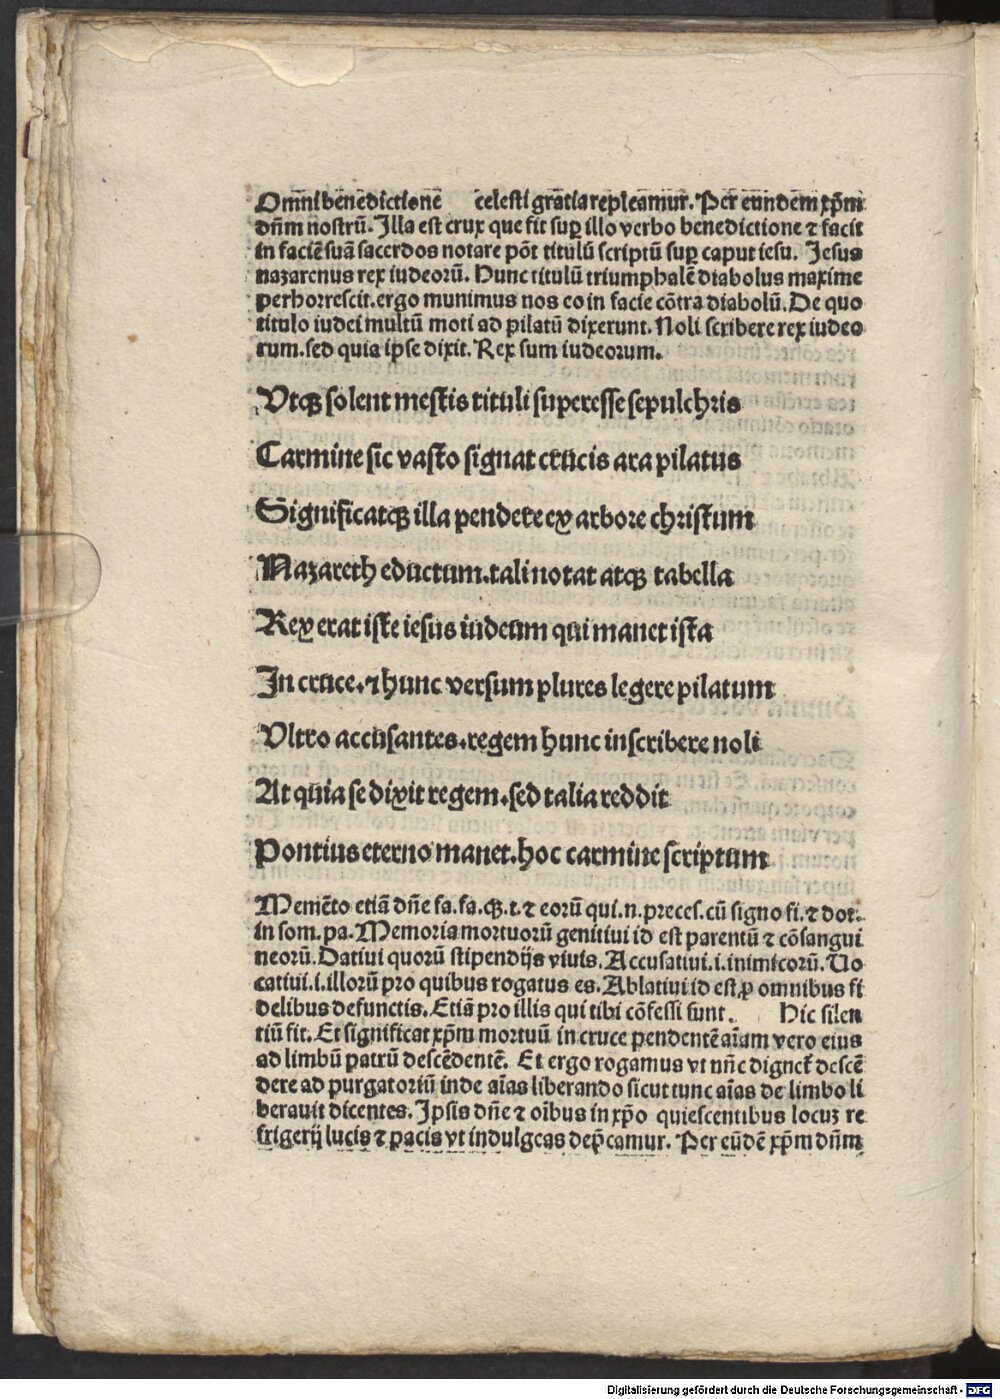 Omni benedictione celesti gratia repleamur. Per eundem xp̄m
dn̄m nostrū. Illa est crux que fit suꝑ illo verbo benedictione ⁊ facit
in faciē suā sacerdos notare pōt titulū scriptū suꝑ caput iesu. Jesus
nazarenus rex iudeorū. Hunc titulū triumphalē diabolus maxime
perhorrescit. ergo munimus nos eo in facie cōtra diabolū. De quo
titulo iudei multū moti ad pilatū dixerunt. Noli scribere rex iudeo
rum. sed quia ipse dixit. Rex sum iudeorum.
Vtqꝫ solent mestis tituli superesse sepulchris
Carmine sic vasto signat crucis ara pilatus
Significatqꝫ illa pendere ex arbore christum
Nazareth eductum. tali notat atqꝫ tabella
Rex erat iste iesus iudeum qui manet ista
In cruce. ⁊ hunc versum plures legere pilatum
Vltro accusantes. regem hunc inscribere noli
At quia se dixit regem. sed talia reddit
Pontius eterno manet. hoc carmine scriptum
Memēto etiā dn̄e fa. fa. qꝫ. t. ⁊ eorū qui. n. preces. cū signo fi. ⁊ dor.
in som. pa. Memoria mortuorū genitiui id est parentū ⁊ cōsangui
neorū. Datiui quorū stipendijs viuis. Accusatiui. i. inimicorū. Vo
catiui. i. illorū pro quibus rogatus es. Ablatiui id est ꝓ omnibus fi
delibus defunctis. Etiā pro illis qui tibi cōfessi sunt. Hic silen
tiū fit. Et significat xp̄m mortuū in cruce pendentē aīam vero eius
ad limbū patrū descēdentē. Et ergo rogamus vt nūc dignet᷑ descē
dere ad purgatoriū inde aīas liberando sicut tunc aīas de limbo li
berauit dicentes. Ipsis dn̄e ⁊ oībus in xp̄o quiescentibus locuꝫ re
frigerij lucis ⁊ pacis vt indulgeas dep̄camur. Per eūdē xp̄m dn̄m
Digitalisierung gefördert durch die Deutsche Forschungsgemeinschaft - DFG